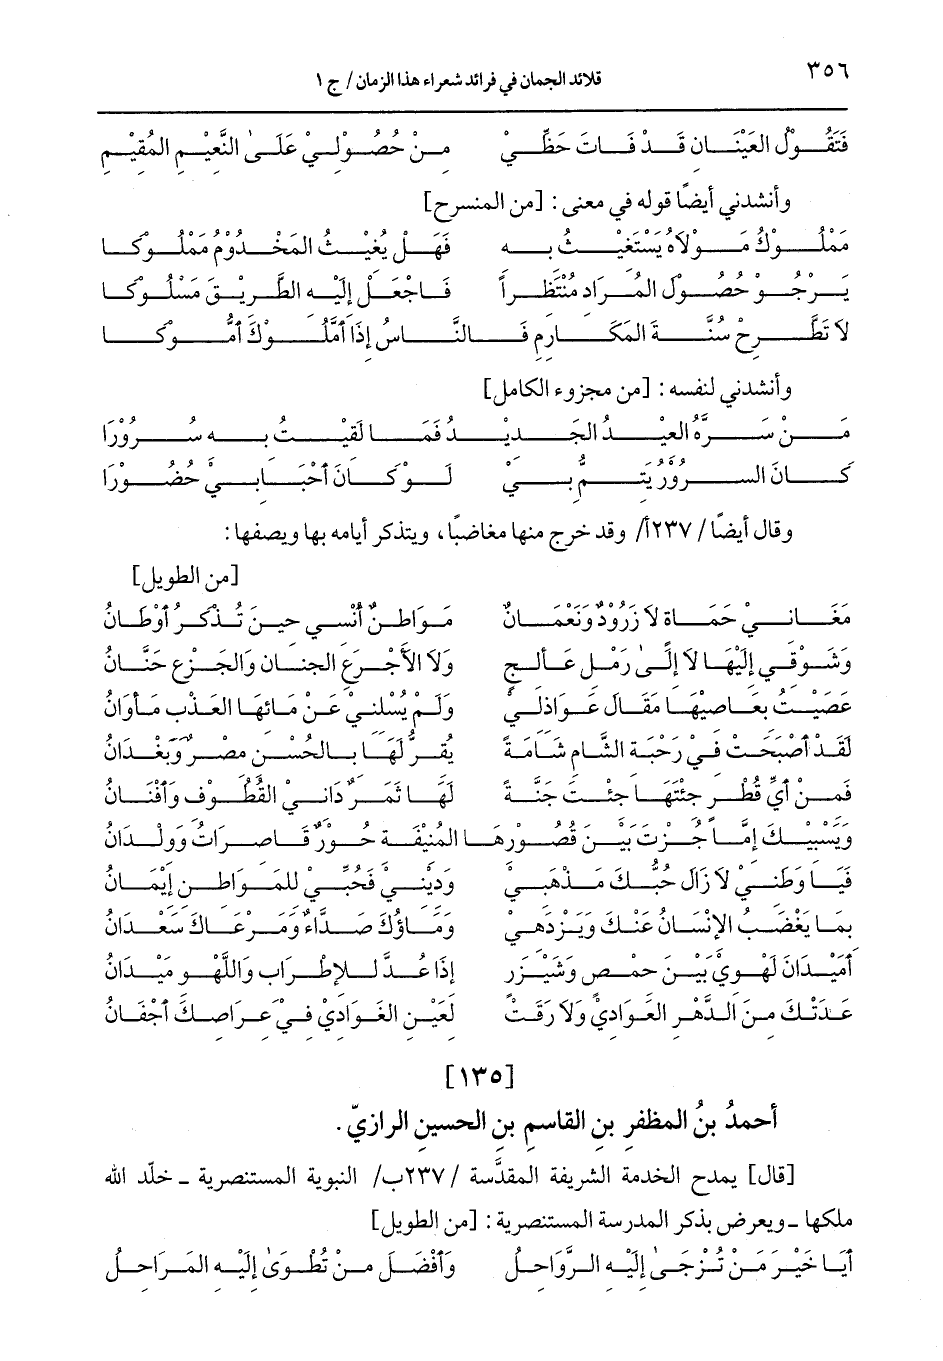 ٣٥٦
قلائد الجمان في فرائد شعراء هذا الزمان / ج ١
فَتَقُولُ العَيْنَانِ قَدْ فَاتَ حَظِّيْ مِنْ حُصُوْلِيْ عَلَىٰ النَّعِيْمِ المُقِيْمِ
وأنشدني أيضًا قوله في معنى: [من المنسرح]
مَمْلُوْكُ مَوْلَاهُ يَسْتَغِيْثُ بِهِ فَهَلْ يُغِيْثُ المَخْدُوْمُ مَمْلُوكَا
يَرْجُو حُصُوْلَ المُرَادِ مُنْتَظِراً فَاجْعَلْ إِلَيْهِ الطَّرِيْقَ مَسْلُوكَا
لَا تَطَّرِحْ سُنَّةَ المَكَارِمِ فَالنَّاسُ إِذَا أَمَّلُوْكَ أَمُّوكَا
وأنشدني لنفسه: [من مجزوء الكامل]
مَنْ سَرَّهُ العِيْدُ الجَدِيْدُ فَمَا لَقِيْتُ بِهِ سُرُوْرَا
كَانَ السُّرُوْرُ يَتِمُّ بِيْ لَوْ كَانَ أَحْبَابِيْ حُضُوْرَا
وقال أيضًا / ٢٣٧أ/ وقد خرج منها مغاضبًا، ويتذكر أيامه بها ويصفها:
[من الطويل]
مَغَانِيْ حَمَاةٍ لَا زَرُوْدٌ وَنَعْمَانُ مَوَاطِنُ أُنْسِي حِيْنَ تُذْكَرُ أَوْطَانُ
وَشَوْقِي إِلَيْهَا لَا إِلَىٰ رَمْلِ عَالِجٍ وَلَا الأَجْرَعِ الجِنَانِ وَالجِزْعِ حَنَّانُ
عَصَيْتُ بِعَاصِيْهَا مَقَالَ عَوَاذِلِيْ وَلَمْ يُسْلِنيْ عَنْ مَائِهَا العَذْبِ مَأوَانُ
لَقَدْ أَصْبَحَتْ فِيْ رَحْبَةِ الشَّامِ شَامَةً يُقِرُّ لَهَا بِالحُسْنِ مِصْرٌ وَبَغْدَانُ
فَمِنْ أَيِّ قُطْرٍ جِئْتَهَا جِئْتَ جَنَّةً لَهَا ثَمَرٌ دَانِيْ القُطُوْفِ وَأَفْنَانُ
وَيَسْبِيْكَ إِمَّا جُزْتَ بَيْنَ قُصُوْرِهَا المُنِيْفَةِ حُوْرٌ قَاصِرَاتٌ وَوِلْدَانُ
فَيَا وَطَنِيْ لَا زَالَ حُبُّكَ مَذْهَبِيْ وَدِيْنِيْ فَحُبِّيْ لِلْمَوَاطِنِ إِيْمَانُ
بِمَا يَغْضَبُ الإِنْسَانُ عَنْكَ وَيَزْدَهِيْ وَمَاؤُكَ صَدَّاءٌ وَمَرْعَاكَ سَعْدَانُ
أَمَيْدَانَ لَهْوِيْ بَيْنَ حِمْصٍ وَشَيْزَرٍ إِذَا عُدَّ لِلإِطْرَابِ وَاللَّهْوِ مَيْدَانُ
عَدَتْكَ مِنَ الدَّهْرِ العَوَادِيْ وَلَا رَقَتْ لَعَيْنِ الغَوَادِيْ فِيْ عَرَاصِكَ أَجْفَانُ
[١٣٥]
أحمدُ بنُ المظفر بن القاسم بن الحسين الرازيّ.
[قال] يمدح الخدمة الشريفة المقدَّسة / ٢٣٧ب/ النبوية المستنصرية ـ خلّد الله
ملكها ـ ويعرض بذكر المدرسة المستنصرية: [من الطويل]
أَيَا خَيْرَ مَنْ تُزْجَىٰ إِلَيْهِ الرَّوَاحِلُ وَأَفْضَلَ مِنْ تُطْوَىٰ إِلَيْهِ المَرَاحِلُ